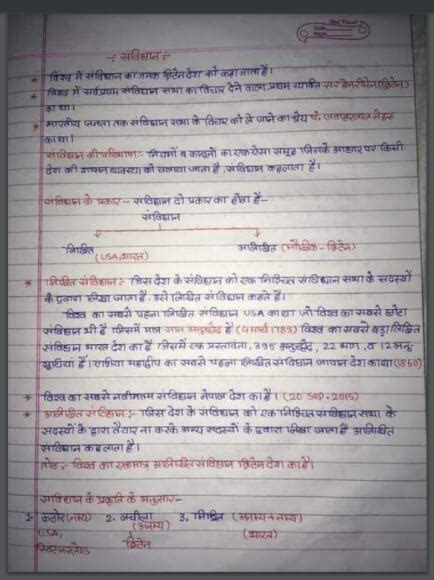 -: संविधान :-
* विश्व में संविधान का जनक ब्रिटेन देश को कहा जाता है।
* विश्व में सर्वप्रथम संविधान सभा का विचार देने वाला प्रथम व्यक्ति सर हेनरीमेन (ब्रिटेन)
का था।
* भारतीय जनता तक संविधान सभा के विचार को ले जाने का श्रेय पं. जवाहरलाल नेहरू
का था।
संविधान की परिभाषा:- नियमों व कानूनों का एक ऐसा समूह जिसके आधार पर किसी
देश की शासन व्यवस्था को चलाया जाता है, संविधान कहलाता है।
संविधान के प्रकार - संविधान दो प्रकार का होता है-
संविधान
लिखित अलिखित (मौखिक - ब्रिटेन)
(USA, भारत)
* लिखित संविधान:- जिस देश के संविधान को एक निश्चित संविधान सभा के सदस्यों
के द्वारा लिखा जाता है, उसे लिखित संविधान कहते हैं।
विश्व का सबसे पहला लिखित संविधान USA का था जो विश्व का सबसे छोटा
संविधान भी है जिसमें मात्र सात अनुच्छेद है (4 मार्च 1789) विश्व का सबसे बड़ा लिखित
संविधान भारत देश का है जिसमें एक प्रस्तावना, 395 अनुच्छेद, 22 भाग, व 12 अनु-
सूचियां हैं। एशिया महाद्वीप का सबसे पहला लिखित संविधान जापान देश का था
* विश्व का सबसे नवीनतम संविधान नेपाल देश का है। (20 Sep. 2015)
* अलिखित संविधान:- जिस देश के संविधान को एक निश्चित संविधान सभा के
सदस्यों के द्वारा तैयार ना करके अन्य सदस्यों के द्वारा लिखा जाता है अलिखित
संविधान कहलाता है।
नोट:- विश्व का एकमात्र अलिखित संविधान ब्रिटेन देश का है।
संविधान के प्रकृति के अनुसार-
1. कठोर (नाम्य) 2. लचीला 3. मिश्रित (अनाम्य + नाम्य)
(अनाम्य) (भारत)
USA, ब्रिटेन
स्विटजरलैण्ड